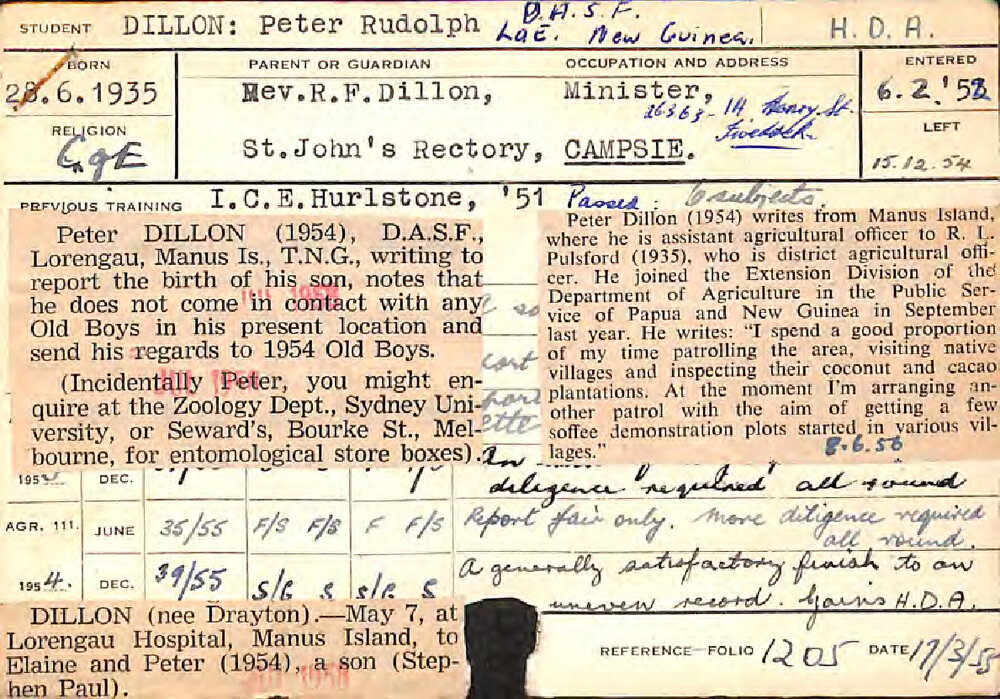 STUDENT DILLON: Peter Rudolph D.A.S.F. Lae. New Guinea. H.D.A.
BORN PARENT OR GUARDIAN OCCUPATION AND ADDRESS ENTERED
28.6.1935 Rev.R.F.Dillon, Minister, 6.2.'52
26363 - 14 Henry St.
RELIGION LEFT
C of E St.John's Rectory, CAMPSIE. 15.12.54
PREVIOUS TRAINING I.C.E.Hurlstone, '51 Passed: 6 subjects.
Peter DILLON (1954), D.A.S.F.,
Lorengau, Manus Is., T.N.G., writing to
report the birth of his son, notes that
he does not come in contact with any
Old Boys in his present location and
send his regards to 1954 Old Boys.
(Incidentally Peter, you might en-
quire at the Zoology Dept., Sydney Uni-
versity, or Seward's, Bourke St., Mel-
bourne, for entomological store boxes).
Peter Dillon (1954) writes from Manus Island,
where he is assistant agricultural officer to R. L.
Pulsford (1935), who is district agricultural offi-
cer. He joined the Extension Division of the
Department of Agriculture in the Public Ser-
vice of Papua and New Guinea in September
last year. He writes: "I spend a good proportion
of my time patrolling the area, visiting native
villages and inspecting their coconut and cacao
plantations. At the moment I'm arranging an-
other patrol with the aim of getting a few
soffee demonstration plots started in various vil-
lages."
8.6.56
195 DEC. diligence required all round
AGR. 111. JUNE 35/55 F/S F/S F F/S Report fair only. More diligence required
all round.
1954. DEC. 39/55 S/G S S/G S A generally satisfactory finish to an
uneven record. Gains H.D.A.
DILLON (nee Drayton).—May 7, at
Lorengau Hospital, Manus Island, to
Elaine and Peter (1954), a son (Step-
hen Paul).
REFERENCE—FOLIO 1205 DATE 17/3/55